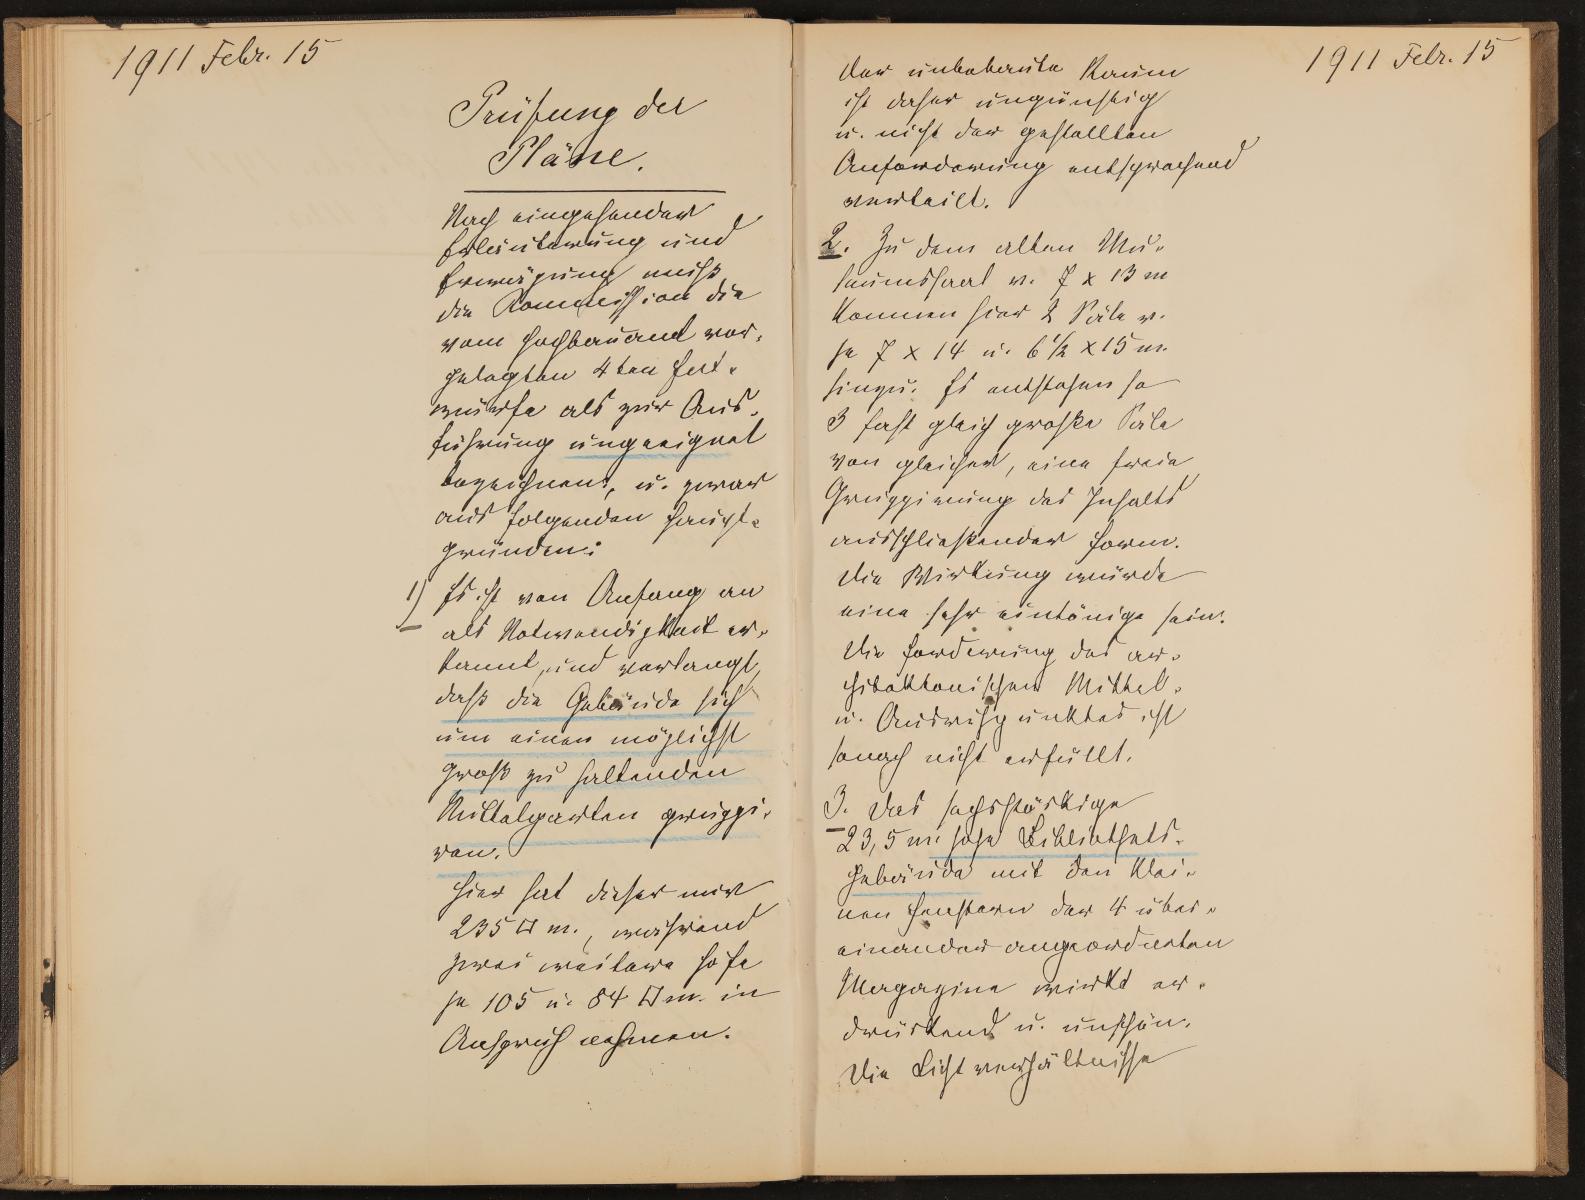 1911 Febr. 15
Prüfung der
Pläne.
Nach eingehender
Erläuterung und
Erwägung muß
die Kommission die
vom Hochbauamt vor¬
gelegten 4ten Ent¬
würfe als zur Aus¬
führung ungeeignet
bezeichnen, u. zwar
aus folgenden Haupt¬
gründen:
1) Es ist von Anfang an
als Notwendigkeit er¬
kannt, und verlangt,
daß die Gebäude sich
um einen möglichst
groß zu haltenden
Mittelgarten gruppi¬
ren.
Hier hat dieser nur
235 □ m., während
zwei weitere Höfe
je 105 u. 84 □ m. in
Anspruch nehmen.
1911 Febr. 15
Der unbebaute Raum
ist daher ungünstig
u. nicht der gestellten
Anforderung entsprechend
verteilt.
2. Zu dem alten Mu¬
seumssaal v. 7 x 13 m
kommen hier 2 Säle v.
je 7 x 14 u. 6 1/2 x 15 m.
hinzu. Es entstehen so
3 fast gleich große Säle
von gleicher, eine freie
Gruppierung des Inhalts
ausschließender Form.
Die Wirkung würde
eine sehr eintönige sein.
Die Forderung des ar¬
chitektonischen Mittel¬
u. Ausruhpunktes ist
sonach nicht erfüllt.
3. Das sechsstöckige
23,5 m. hohe Bibliotheks¬
gebäude mit den klei¬
nen Fenstern der 4 über¬
einander angeordneten
Magazine wirkt er¬
drückend u. unschön.
Die Lichtverhältnisse